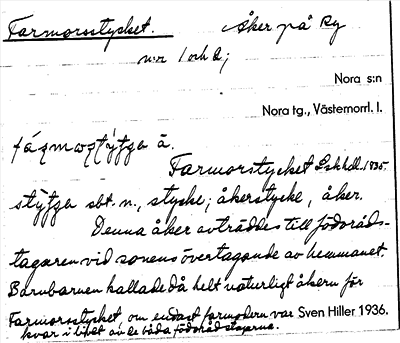 Farmorsstycket. Åker på Ry
n:r 1 och 2;
Nora s:n
Nora tg., Västernorrl. l.
Farmorstycket Lskhdl. 1835.
sbt. n., stycke; åkerstycke, åker.
Denna åker avträddes till födoråds-
tagaren vid sonens övertagande av hemmanet.
Barnbarnen kallade då helt naturligt åkern för
Farmorsstycket, om endast farmodern var Sven Hiller 1936.
kvar i livet av de båda födorådstagarna.